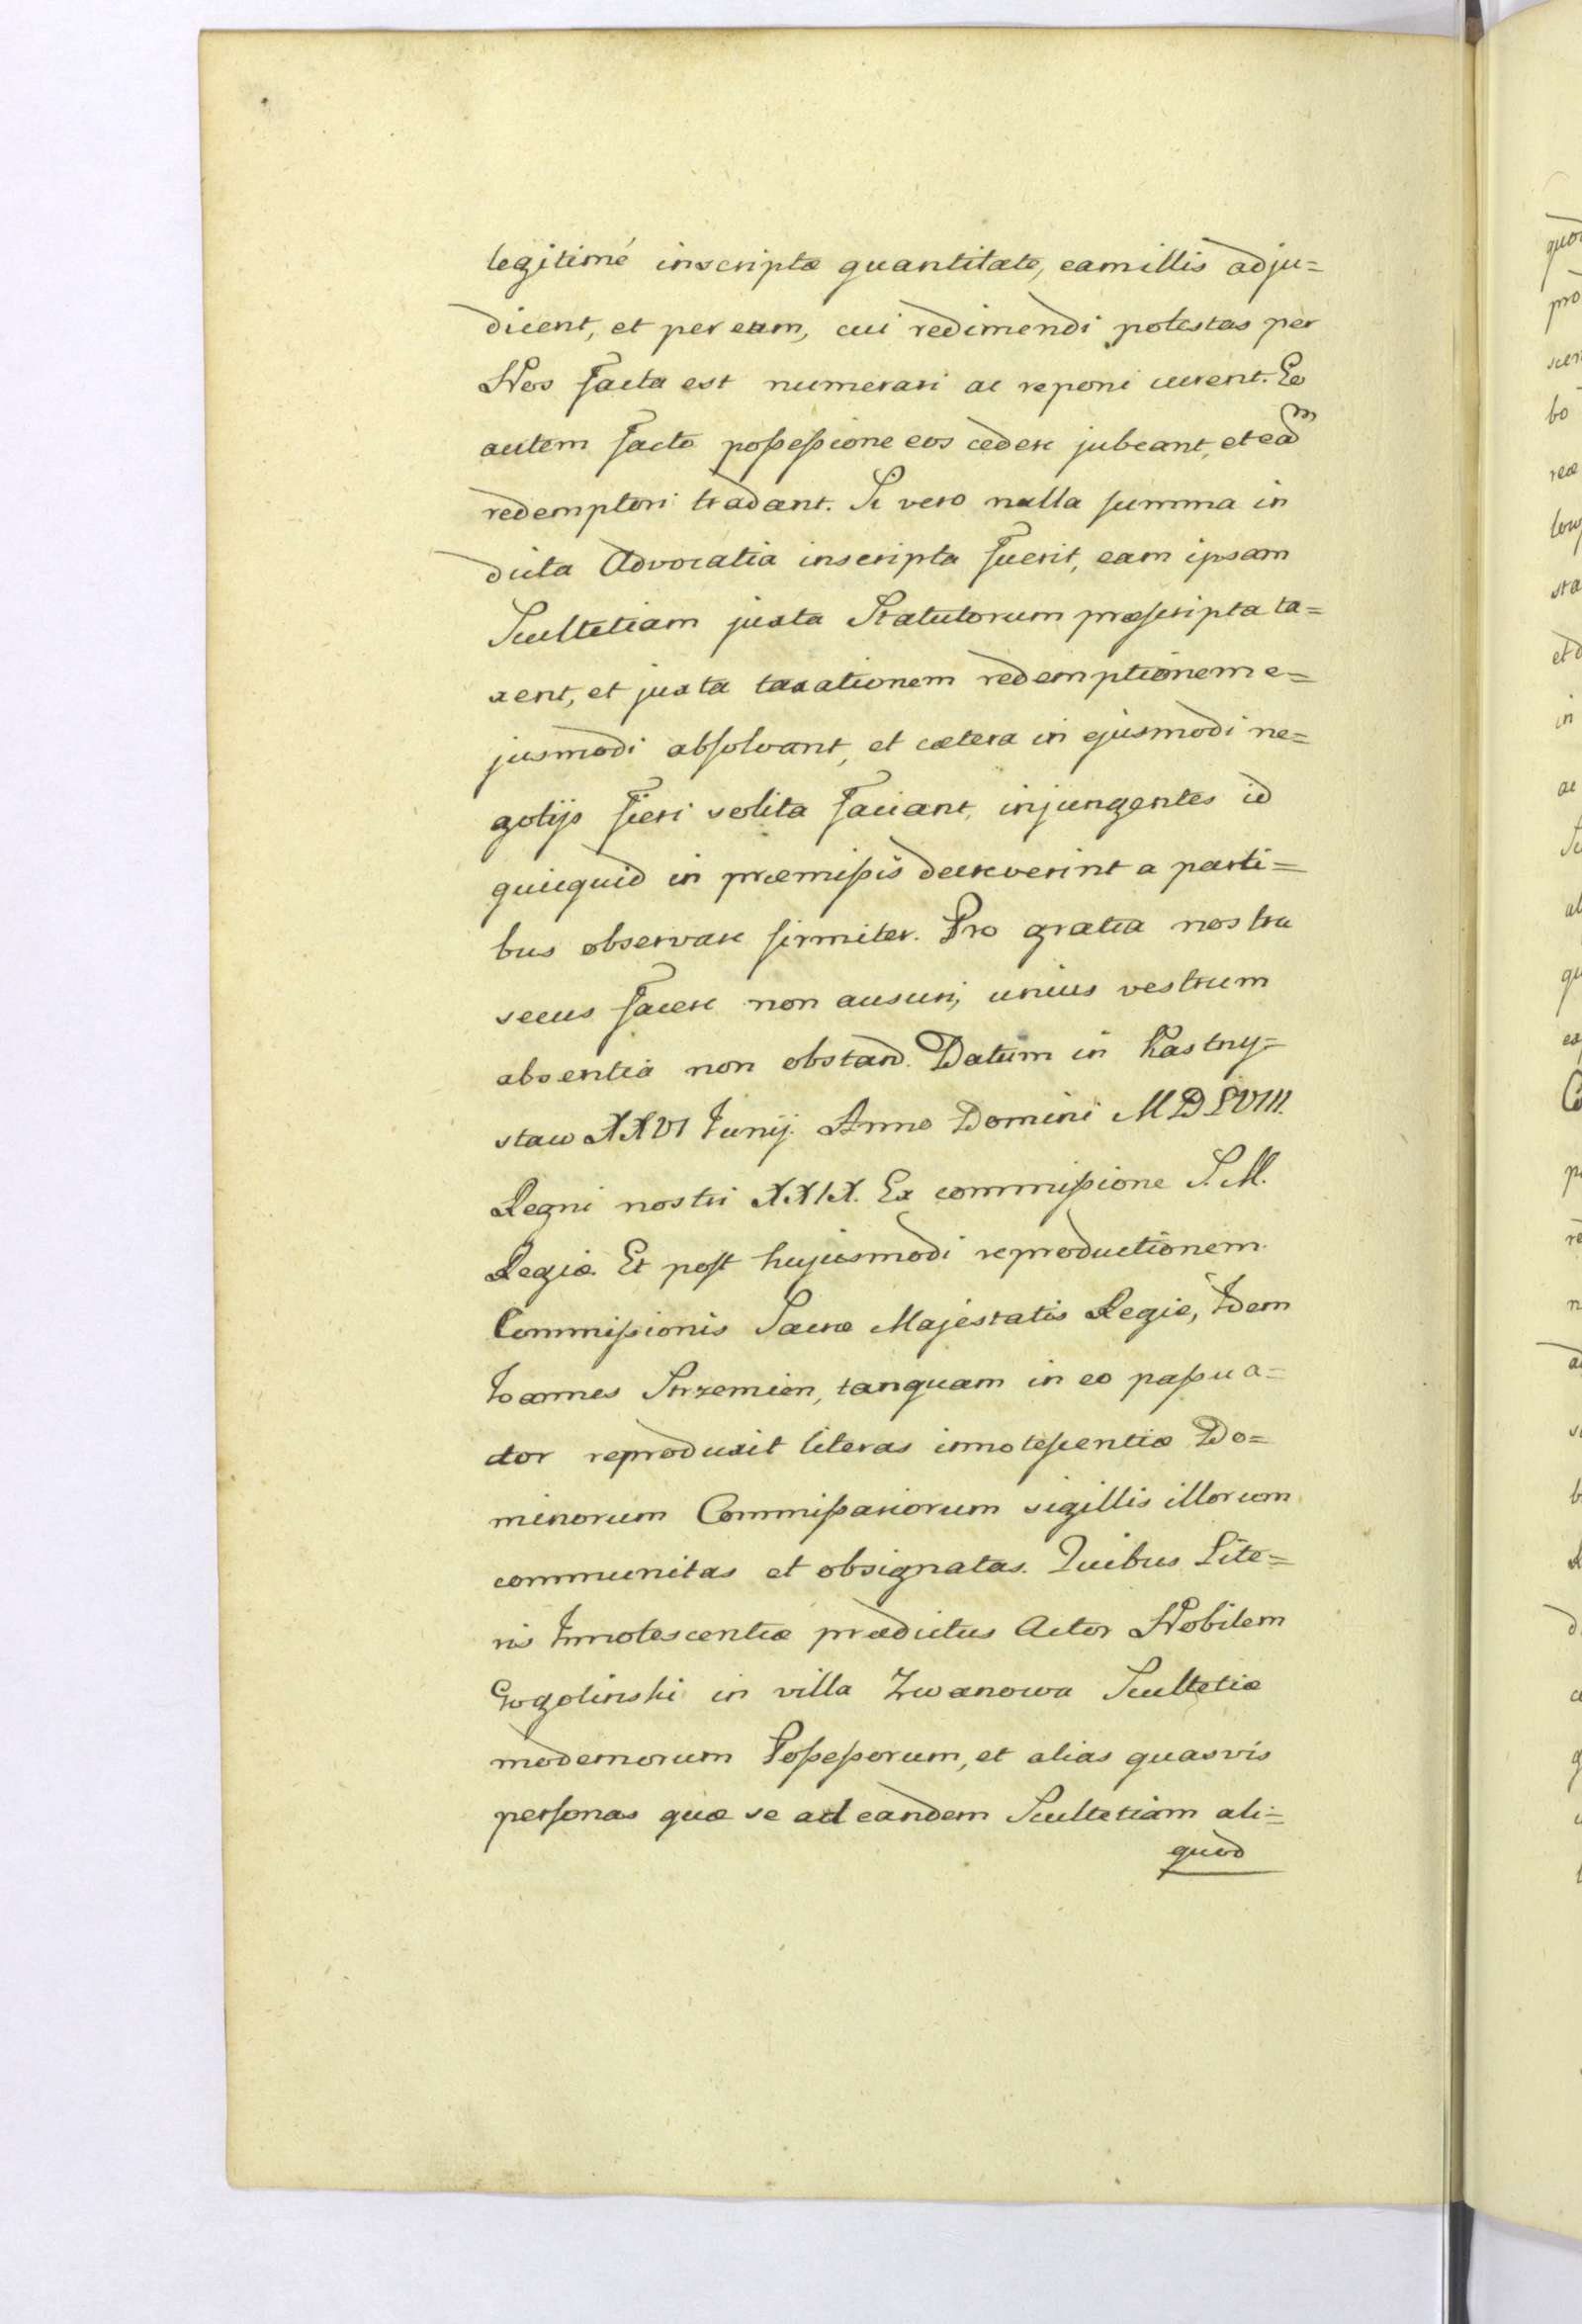 legitimé inscriptæ quantitate, eam illis adju=
dicent, et per eum, cui redimendi potestas per
Nos facta est numerari ac reponi curent. Eo
autem facto poſseſsione eos cedere jubeant, et eam
redemptori tradant. Si vero nulla ſumma in
dicta Advocatia inscripta fuerit, eam ipsam
Scultetiam juxta Statutorum præſcripta ta=
xent, et juxta taxationem redemptionem e=
jusmodi abſolvant, et cætera in ejusmodi ne=
gotijs fieri solita faciant, injungentes id
quicquid in præmiſsis decreverint a parti=
bus observare firmiter. Pro gratia nostra
secus facere non ausuri, unius vestrum
absentia non obstand. Datum in Kastny=
staw XXVI Junij. Anno Domini MDLVIII.
Regni nostri XXIX. Ex commiſsione S. M.
Regiæ. Et poſt hujusmodi reproductionem
Commiſsionis Sacræ Majestatis Regiæ, Idem
Joannes Strzemien, tanquam in eo paſsu a=
ctor reproduxit literas innoteſcentiæ Do=
minorum Commiſsariorum sigillis illorum
communitas et obsignatas. Quibus Lite=
ris Innotescentiæ prædictus Actor Nobilem
Gogolinski in villa Zwanowa Scultetiæ
modernorum Poſseſsorum, et alias quasvis
perſonas quæ se ad eandem Scultetiam ali=
quod